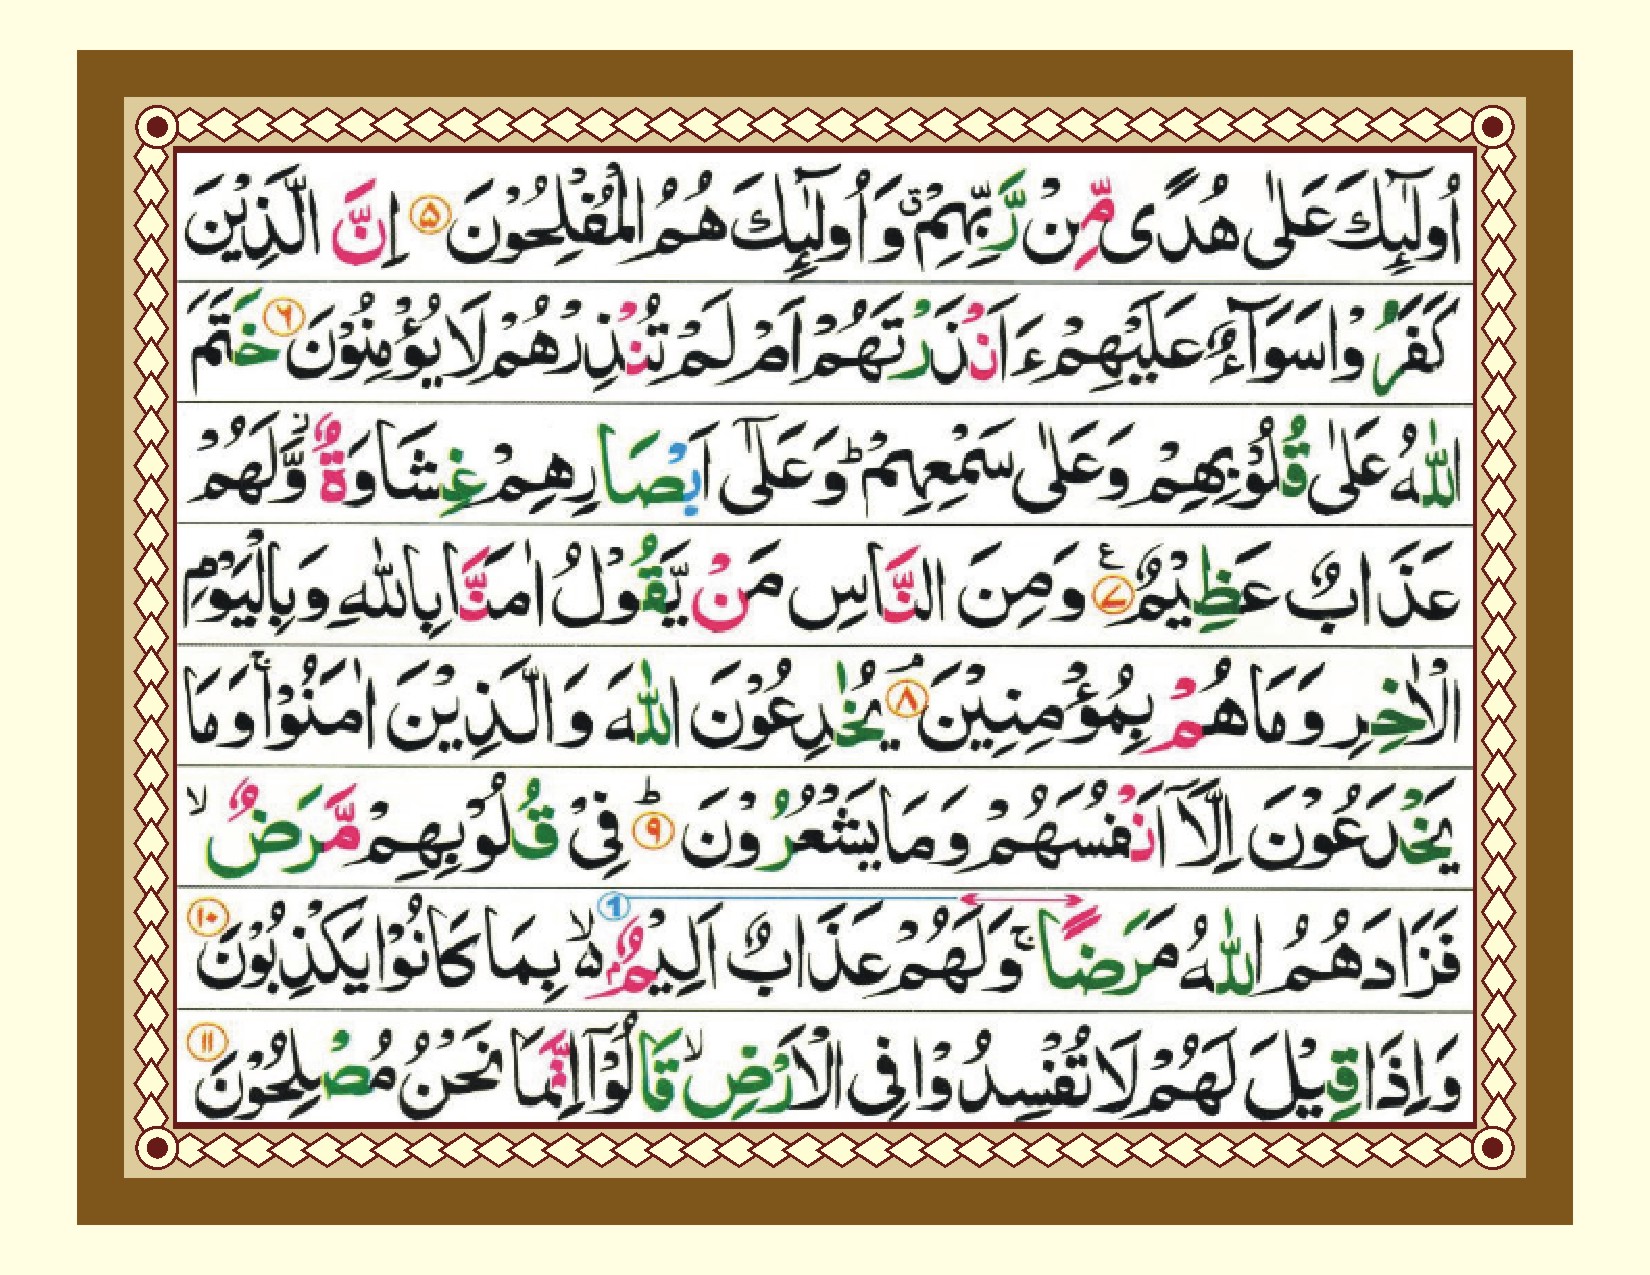 اُولٰٓئِكَ عَلٰى هُدًى مِّنْ رَّبِّهِمْ ۗ وَاُولٰٓئِكَ هُمُ الْمُفْلِحُوْنَ ۵ اِنَّ الَّذِيْنَ
كَفَرُوْا سَوَآءٌ عَلَيْهِمْ ءَاَنْذَرْتَهُمْ اَمْ لَمْ تُنْذِرْهُمْ لَا يُؤْمِنُوْنَ ۶ خَتَمَ
اللّٰهُ عَلٰى قُلُوْبِهِمْ وَعَلٰى سَمْعِهِمْ ؕ وَعَلٰٓى اَبْصَارِهِمْ غِشَاوَةٌ ۙ وَّلَهُمْ
عَذَابٌ عَظِيْمٌ ۷ ع وَمِنَ النَّاسِ مَنْ يَّقُوْلُ اٰمَنَّا بِاللّٰهِ وَبِالْيَوْمِ
الْاٰخِرِ وَمَا هُمْ بِمُؤْمِنِيْنَ ۘ ۸ يُخٰدِعُوْنَ اللّٰهَ وَالَّذِيْنَ اٰمَنُوْا ۚ وَمَا
يَخْدَعُوْنَ اِلَّاۤ اَنْفُسَهُمْ وَمَا يَشْعُرُوْنَ ؕ ۹ فِىْ قُلُوْبِهِمْ مَّرَضٌ ۙ
فَزَادَهُمُ اللّٰهُ مَرَضًا ۚ وَلَهُمْ عَذَابٌ اَلِيْمٌ ۢ ۙ ۵ بِمَا كَانُوْا يَكْذِبُوْنَ ۱۰
وَاِذَا قِيْلَ لَهُمْ لَا تُفْسِدُوْا فِى الْاَرْضِ ۙ قَالُوْٓا اِنَّمَا نَحْنُ مُصْلِحُوْنَ ۱۱